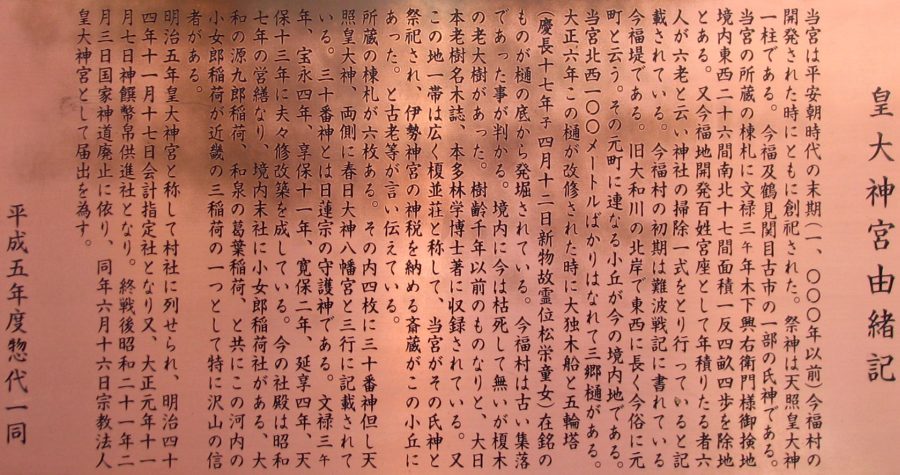 皇大神宮由緒記
当宮は平安朝時代の末期(一、〇〇〇年以前)今福村の
開発された時にともに創祀された。祭神は天照皇大神
一柱である。今福及鶴見関目古市の一部の氏神である。
当宮の所蔵の棟札に文禄三午年木下與右衛門様御検地
境内東西二十六間南北十七間面積一反四畝四歩を除地
とある。又今福地開発百姓宮座として年積りたる者六
人が六老と云い神社の掃除一式をとり行っていると記
載されている。今福村の初期は難波戦記に書れている
今福堤である。旧大和川の北岸で東西に長く今俗に元
町と云う。その元町に連なる小丘が今の境内地である。
当宮北西一〇〇メートルばかりはなれて三郷樋がある。
大正六年この樋が改修された時に大独木船と五輪塔
(慶長十七年子四月十二日新物故霊位松栄童女)在銘の
ものが樋の底から発堀されている。今福村は古い集落
であった事が判かる。境内に今は枯死して無いが榎木
の老大樹があった。樹齢千年以前のものなりと、大日
本老樹名木誌、本多林学博士著に収録されている。又
この地一帯は広く榎並荘と称して、当宮がその氏神と
祭祀され、伊勢神宮の神税を納める斎蔵がこの小丘に
あった。と古老等が言い伝えている。
所蔵の棟札が六枚ある。その内四枚に三十番神但し天
照皇大神、両側に春日大神八幡宮と三行に記載されて
いる。三十番神とは日蓮宗の守護神である。文禄三午
年、宝永四年、享保十一年、寛保二年、延享四年、天
保十三年に夫々修改築を成している。今の社殿は昭和
七年の営繕なり、境内末社に小女郎稲荷社がある、大
和の源九郎稲荷、和泉の葛葉稲荷、と共にこの河内の
小女郎稲荷が近畿の三稲荷の一つとして特に沢山の信
者がある。
明治五年皇大神宮と称して村社に列せられ、明治四十
四年十一月十七日会計指定社となり又、大正元年十一
月七日神饌幣帛供進社となり。終戦後昭和二十一年二
月三日国家神道廃止に依り、同年六月十六日宗教法人
皇大神宮として届出を為す。
平成五年度惣代一同